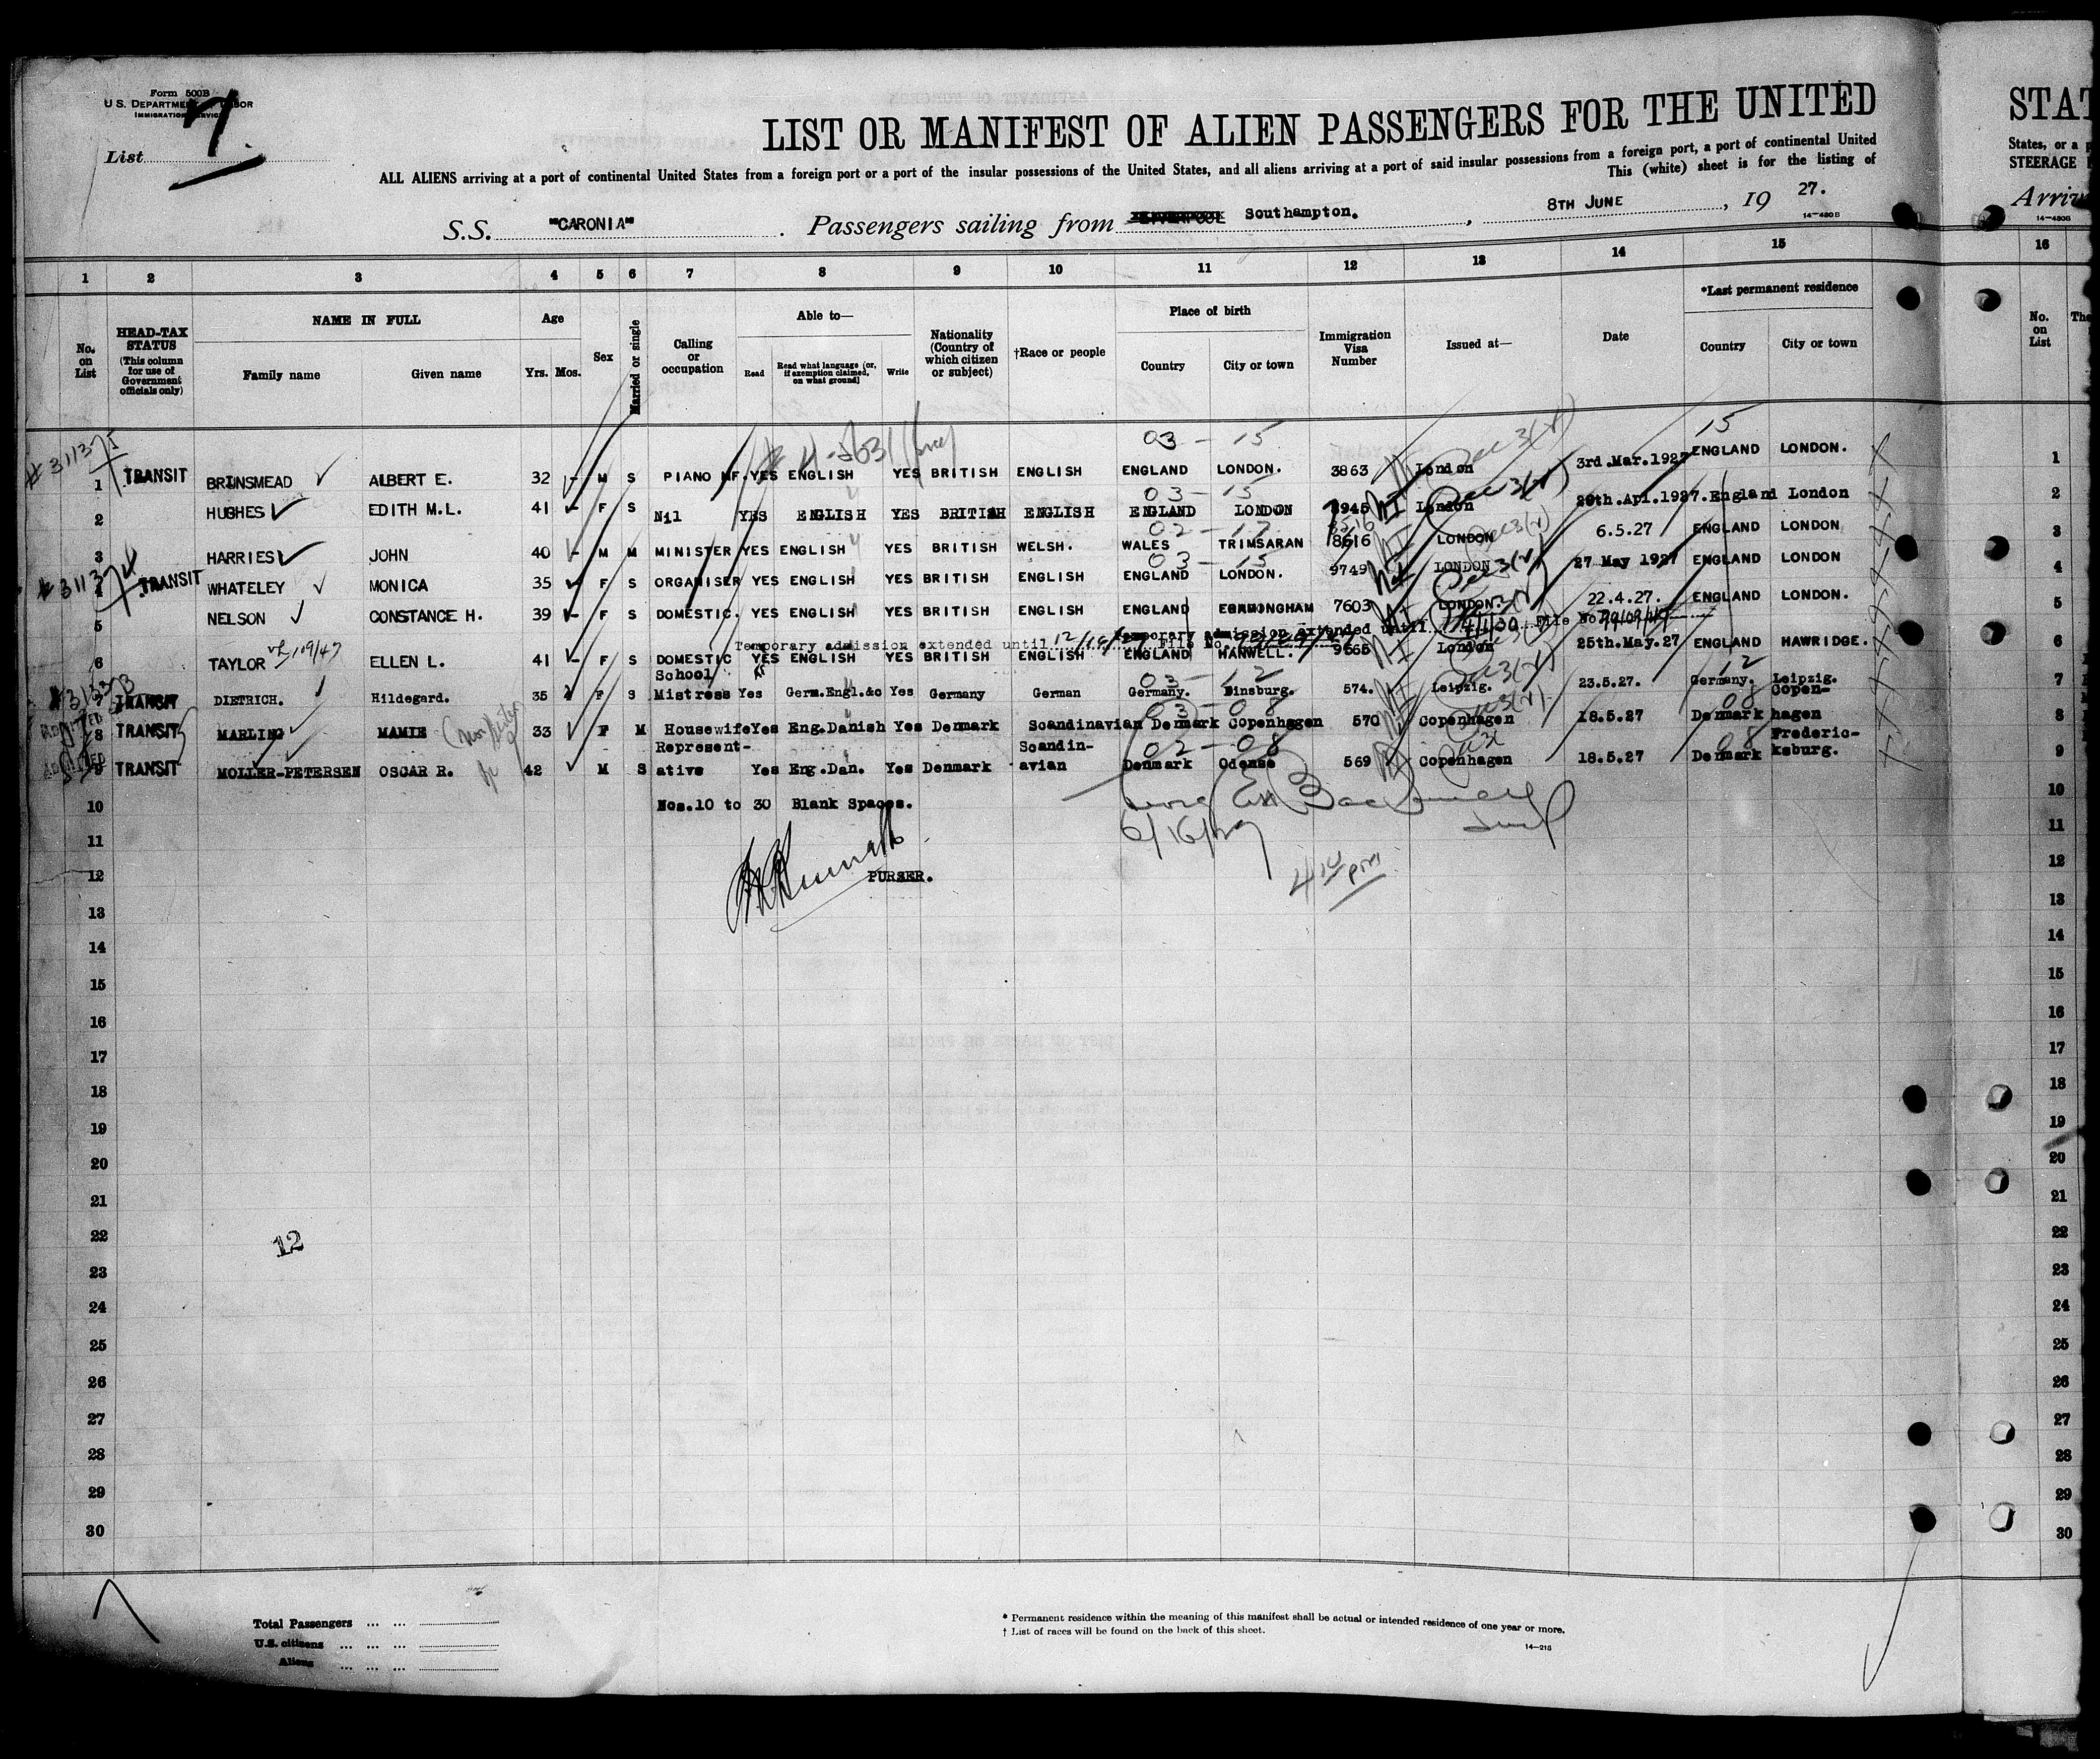 Form 500B
U.S. DEPARTMENT OF LABOR
IMMIGRATION SERVICE
List 7
LIST OR MANIFEST OF ALIEN PASSENGERS FOR THE UNITED
STAT
ALL ALIENS arriving at a port of continental United States from a foreign port or a port of the insular possessions of the United States, and all aliens arriving at a port of said insular possessions from a foreign port, a port of continental United
States, or a p
This (white) sheet is for the listing of
STEERAGE
S.S. "CARONIA" Passengers sailing from LIVERPOOL Southampton. , 8TH JUNE , 19 27.
Arriv
14-480B
14-480B
1 2 3 4 5 6 7 8 9 10 11 12 13 14 15 16
No. on List
HEAD-TAX STATUS (This column for use of Government officials only)
NAME IN FULL
Family name Given name
Age
Yrs. Mos.
Sex
Married or single
Calling or occupation
Able to—
Read Read what language (or, if exemption claimed, on what ground) Write
Nationality (Country of which citizen or subject)
†Race or people
Place of birth
Country City or town
Immigration Visa Number
Issued at—
Date
*Last permanent residence
Country City or town
No. on List
The
03 - 15 15
1 TRANSIT BRINSMEAD ALBERT E. 32 M S PIANO MF. YES ENGLISH YES BRITISH ENGLISH ENGLAND LONDON. 3863 London 3rd.Mar.1927 ENGLAND LONDON. 1
03 - 15
2 HUGHES EDITH M.L. 41 F S Nil YES ENGLISH YES BRITISH ENGLISH ENGLAND LONDON 7945 London 29th.Apl.1927. England London 2
02 - 17
3 HARRIES JOHN 40 M M MINISTER YES ENGLISH YES BRITISH WELSH. WALES TRIMSARAN 8616 LONDON 6.5.27 ENGLAND LONDON 3
03 - 15
4 TRANSIT WHATELEY MONICA 35 F S ORGANISER YES ENGLISH YES BRITISH ENGLISH ENGLAND LONDON. 9749 LONDON 27 May 1927 ENGLAND LONDON 4
5 NELSON CONSTANCE H. 39 F S DOMESTIC. YES ENGLISH YES BRITISH ENGLISH ENGLAND BIRMINGHAM 7603 LONDON. 22.4.27. ENGLAND LONDON. 5
Temporary admission extended until File No.
Temporary admission extended until File No.
6 TAYLOR ELLEN L. 41 F S DOMESTIC YES ENGLISH YES BRITISH ENGLISH ENGLAND HANWELL. 9665 London 25th.May.27 ENGLAND HAWRIDGE. 6
03 - 12 12
7 TRANSIT DIETRICH. Hildegard. 35 F S School Mistress Yes Germ.Engl.&c Yes Germany German Germany. Dinsburg. 574. Leipzig. 23.5.27. Germany. Leipzig. 7
03 - 08 08
8 TRANSIT MARLING MAMIE 33 F M Housewife Yes Eng.Danish Yes Denmark Scandinavian Denmark Copenhagen 570 Copenhagen 18.5.27 Denmark Copen-hagen 8
02 - 08 08
9 TRANSIT MOLLER-PETERSEN OSCAR R. 42 M S Represent-ative Yes Eng.Dan. Yes Denmark Scandin-avian Denmark Odense 569 Copenhagen 18.5.27 Denmark Frederic-ksburg. 9
10 Nos.10 to 30 Blank Spaces. 10
6/16/27
11 11
12 PURSER. 12
13 13
14 14
15 15
16 16
17 17
18 18
19 19
20 20
21 21
22 12 22
23 23
24 24
25 25
26 26
27 27
28 28
29 29
30 30
Total Passengers ... ...
U.S. citizens ... ... ...
Aliens ... ... ...
* Permanent residence within the meaning of this manifest shall be actual or intended residence of one year or more.
† List of races will be found on the back of this sheet.
14-215